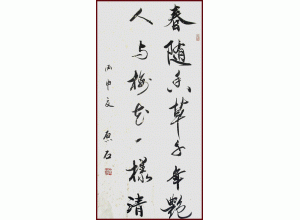 春随香草千年艳
人与梅花一样清
丙申夏